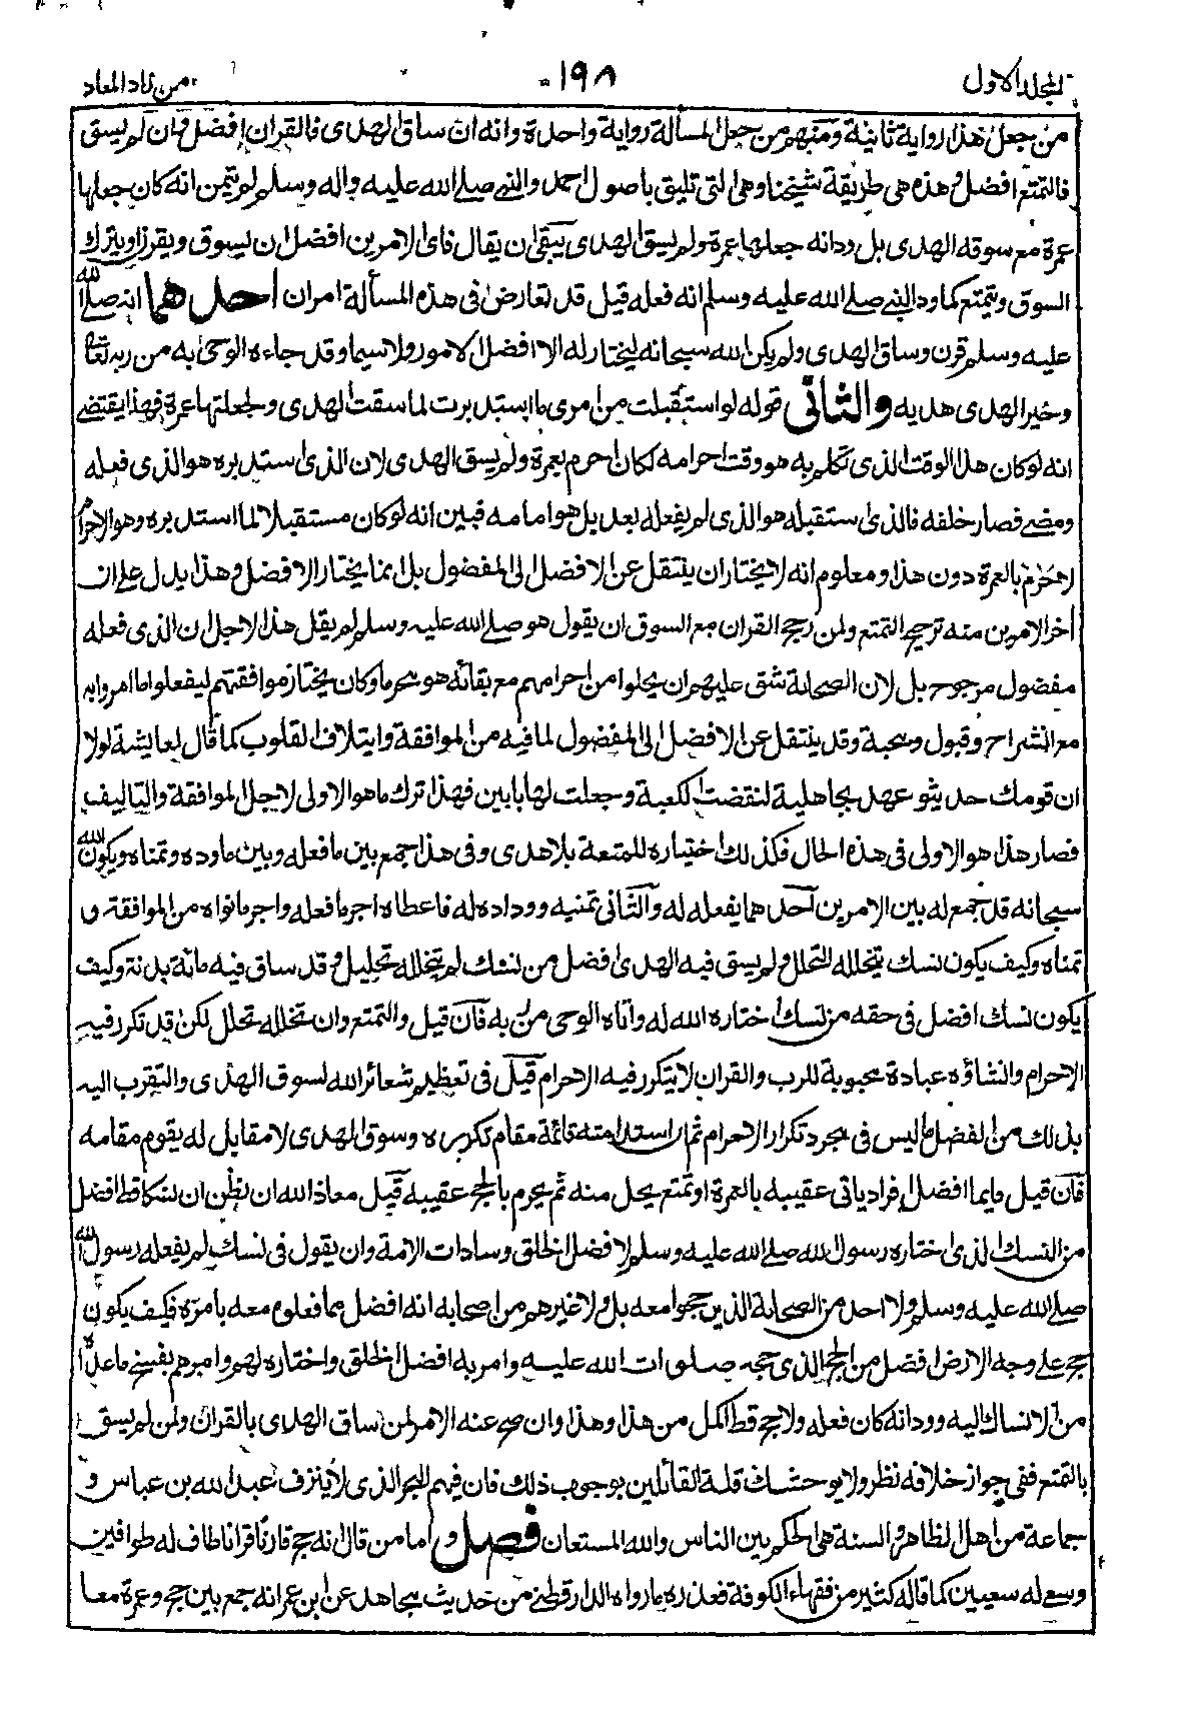 المجلد الاول
١٩٨
من زاد المعاد
من جعل هذا رواية ثانية ومنهم من جعل المسألة رواية واحدة وانه ان ساق الهدى فالقران افضل وان لم يسق
فالتمتع افضل وهذه هى طريقة شيخنا وهى التى تليق باصول احمد والنبى صلى الله عليه واله وسلم لم يتمن انه كان جعلها
عمرة مع سوقه الهدى بل ود انه جعلها عمرة ولم يسق الهدى يبقى ان يقال فاى الامرين افضل ان يسوق ويقرن او يترك
السوق ويتمتع كما ود النبى صلى الله عليه وسلم انه فعله قيل قد تعارض فى هذه المسألة امران احدهما انه صلى الله
عليه وسلم قرن وساق الهدى ولم يكن الله سبحانه ليختار له الا افضل الامور ولا سيما وقد جاءه الوحى به من ربه تعالى
وخير الهدى هديه والثانى قوله لو استقبلت من امرى ما استدبرت لما سقت الهدى ولجعلتها عمرة فهذا يقتضى
انه لو كان هذا الوقت الذى تكلم به هو وقت احرامه لكان احرم بعمرة ولم يسق الهدى لان الذى استدبره هو الذى فعله
ومضى فصار خلفه فالذى استقبله هو الذى لم يفعله بعد بل هو امامه فبين انه لو كان مستقبلا لما استدبره وهو الاحرام
لاحرم بالعمرة دون هذا ومعلوم انه لا يختار ان ينتقل عن الافضل الى المفضول بل انما يختار الافضل وهذا يدل على ان
آخر الامرين منه ترجيح التمتع ولمن رجح القران مع السوق ان يقول هو صلى الله عليه وسلم لم يقل هذا لاجل ان الذى فعله
مفضول مرجوح بل لان الصحابة شق عليهم ان يحلوا من احرامهم مع بقائه هو محرما وكان يختار موافقتهم ليفعلوا ما امروا به
مع انشراح وقبول ومحبة وقد ينتقل عن الافضل الى المفضول لما فيه من الموافقة وايتلاف القلوب كما قال لعايشة لولا
ان قومك حديثو عهد بجاهلية لنقضت الكعبة وجعلت لها بابين فهذا ترك ما هو الاولى لاجل الموافقة والتاليف
فصار هذا هو الاولى فى هذه الحال فكذلك اختياره للمتعة بلا هدى وفى هذا جمع بين ما فعله وبين ما وده وتمناه ويكون الله
سبحانه قد جمع له بين الامرين احدهما يفعله له والثانى تمنيه ووداده له فاعطاه اجر ما فعله واجر ما نواه من الموافقة و
تمناه وكيف يكون نسك يتخلله التحلل ولم يسق فيه الهدى افضل من نسك لم يتخلله تحليل وقد ساق فيه مائة بدنة وكيف
يكون نسك افضل فى حقه من نسك اختاره الله له واتاه الوحى من ربه فان قيل والتمتع وان تخلله تحلل لكن قد تكرر فيه
الاحرام وانشاؤه عبادة محبوبة للرب والقران لا يتكرر فيه الاحرام قيل فى تعظيم شعائر الله لسوق الهدى والتقرب اليه
بذلك من الفضل ما ليس فى مجرد تكرار الاحرام ثم استدامته قائمة مقام تكرره وسوق الهدى لا مقابل له يقوم مقامه
فان قيل فايما افضل افراد ياتى عقيبه بالعمرة او تمتع يحل منه ثم يحرم بالحج عقيبه قيل معاذ الله ان نظن ان نسكا قط افضل
من النسك الذى اختاره رسول الله صلى الله عليه وسلم لافضل الخلق وسادات الامة وان يقول فى نسك لم يفعله رسول الله
صلى الله عليه وسلم ولا احد من الصحابة الذين حجوا معه بل ولا غيرهم من اصحابه انه افضل مما فعلوه معه بامره فكيف يكون
حج على وجه الارض افضل من الحج الذى حجه صلوات الله عليه وامر به افضل الخلق واختاره لهم وامرهم بفسخ ما عداه
من الانساك اليه وود انه كان فعله ولا حج قط اكمل من هذا وهذا وان صح عنه الامر لمن ساق الهدى بالقران ولمن لم يسق
بالتمتع ففى جواز خلافه نظر ولا يوحشك قلة القائلين بوجوب ذلك فان فيهم البحر الذى لا ينزف عبد الله بن عباس و
جماعة من اهل الظاهر والسنة هى الحكم بين الناس والله المستعان فصل واما من قال انه حج قارنا قرانا طاف له طوافين
وسعى له سعيين كما قاله كثير من فقهاء الكوفة فعذره ما رواه الدارقطنى من حديث مجاهد عن ابن عمر انه جمع بين حج وعمرة معا